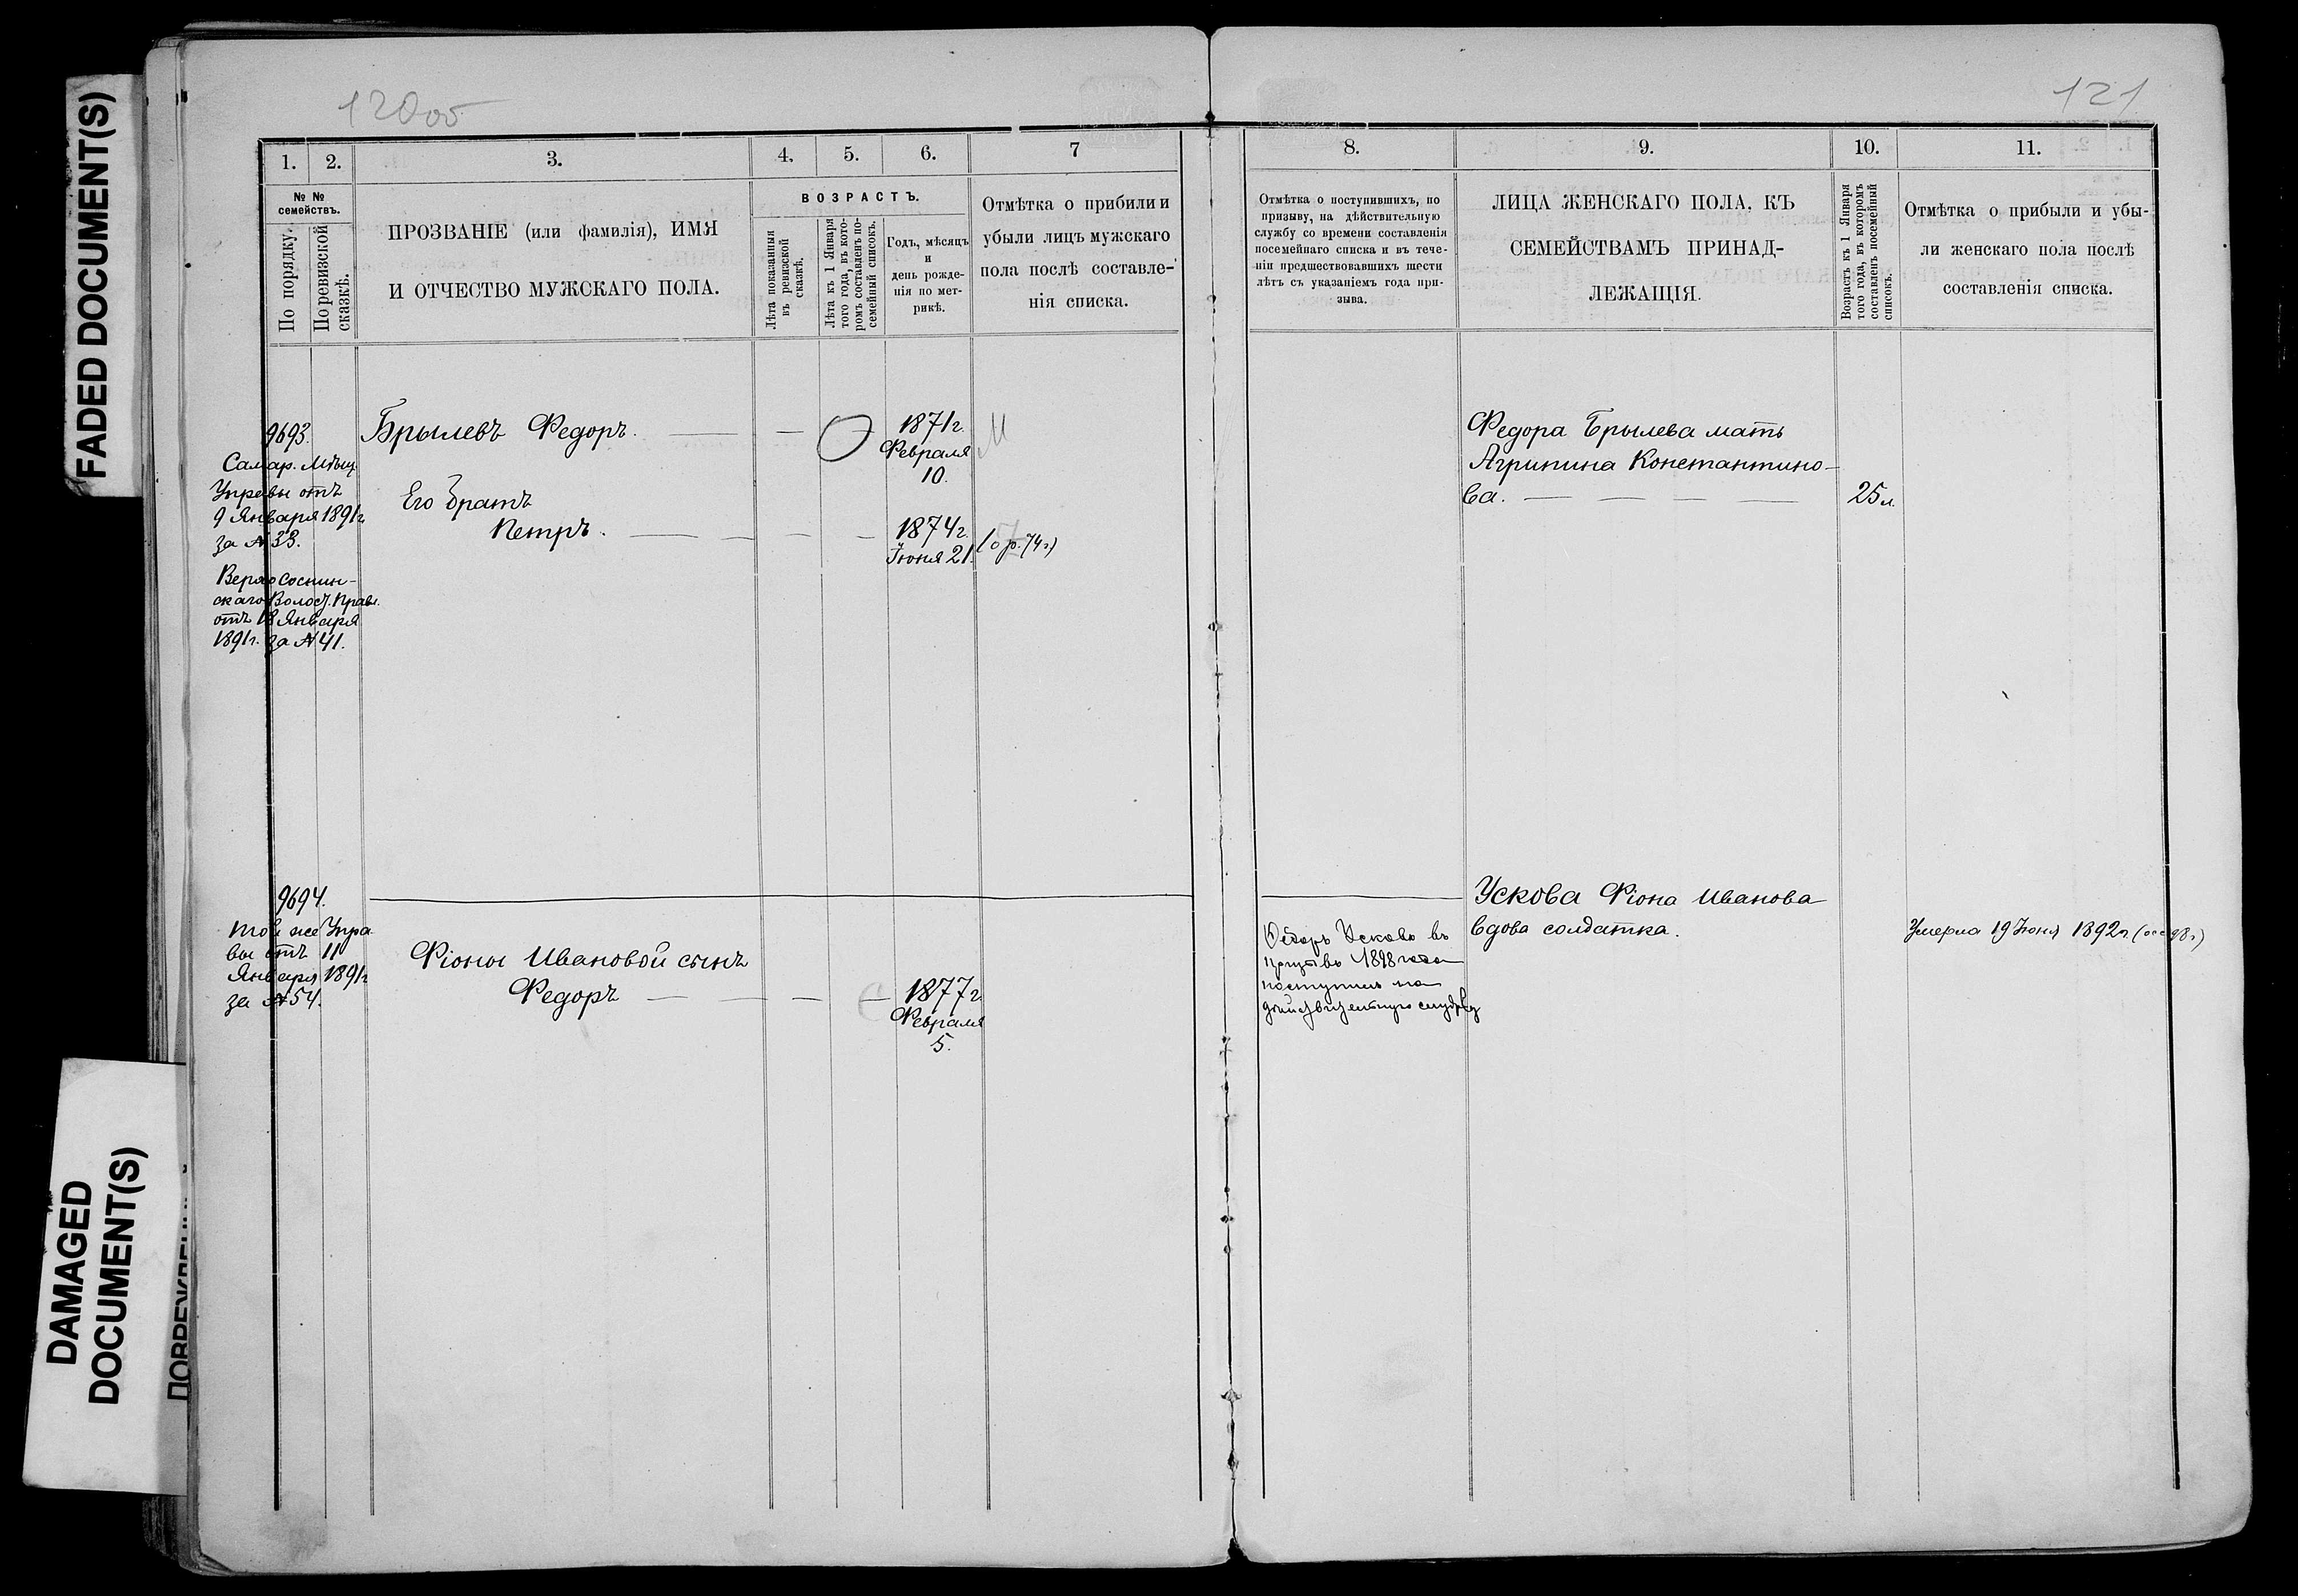 FADED DOCUMENT(S)
DAMAGED
DOCUMENT(S)
120об
1.
2.
3.
4.
5.
6.
7
№ №
семействъ.
По порядку.
По ревизской
сказкѣ.
ПРОЗВАНІЕ (или фамилія), ИМЯ
И ОТЧЕСТВО МУЖСКАГО ПОЛА.
ВОЗРАСТЪ.
Лѣта показанныя
въ ревизской
сказкѣ.
Лѣта къ 1 Января
того года, въ кото-
ромъ составленъ по-
семейный списокъ.
Годъ, мѣсяцъ
и
день рожде-
нія по мет-
рикѣ.
Отмѣтка о прибыли и
убыли лицъ мужскаго
пола послѣ составле-
нія списка.
9693.
Самар. Мѣщ.
Управы отъ
9 Января 1891г
за № 33.
Верхо Соснин-
скаго Волост. Правл.
отъ 18 Января
1891г. за № 41.
Брылевъ Федоръ. — —
1871г.
Февраля
10.
М
Его братъ
Петръ. — — — —
1874г.
Іюня 21.
(о р. 74г)
9694.
той же Упра
вы отъ 11
Января 1891г
за № 54.
Фіоны Ивановой сынъ
Федоръ — — — —
1877г.
Февраля
5.
121
8.
9.
10.
11.
Отмѣтка о поступившихъ, по
призыву, на дѣйствительную
службу со времени составленія
посемейнаго списка и въ тече-
ніи предшествовавшихъ шести
лѣтъ съ указаніемъ года при-
зыва.
ЛИЦА ЖЕНСКАГО ПОЛА, КЪ
СЕМЕЙСТВАМЪ ПРИНАД-
ЛЕЖАЩІЯ.
Возрастъ къ 1 Января
того года, въ которомъ
составленъ посемейный
списокъ.
Отмѣтка о прибыли и убы-
ли женскаго пола послѣ
составленія списка.
Федора Брылева мать
Агрипина Константино-
ва. — — — —
25 л.
Ускова Фіона Иванова
вдова солдатка.
Федоръ Усковъ въ
призывъ 1898 года
поступилъ на
дѣйствительную службу
Умерла 19 Іюня 1892г.